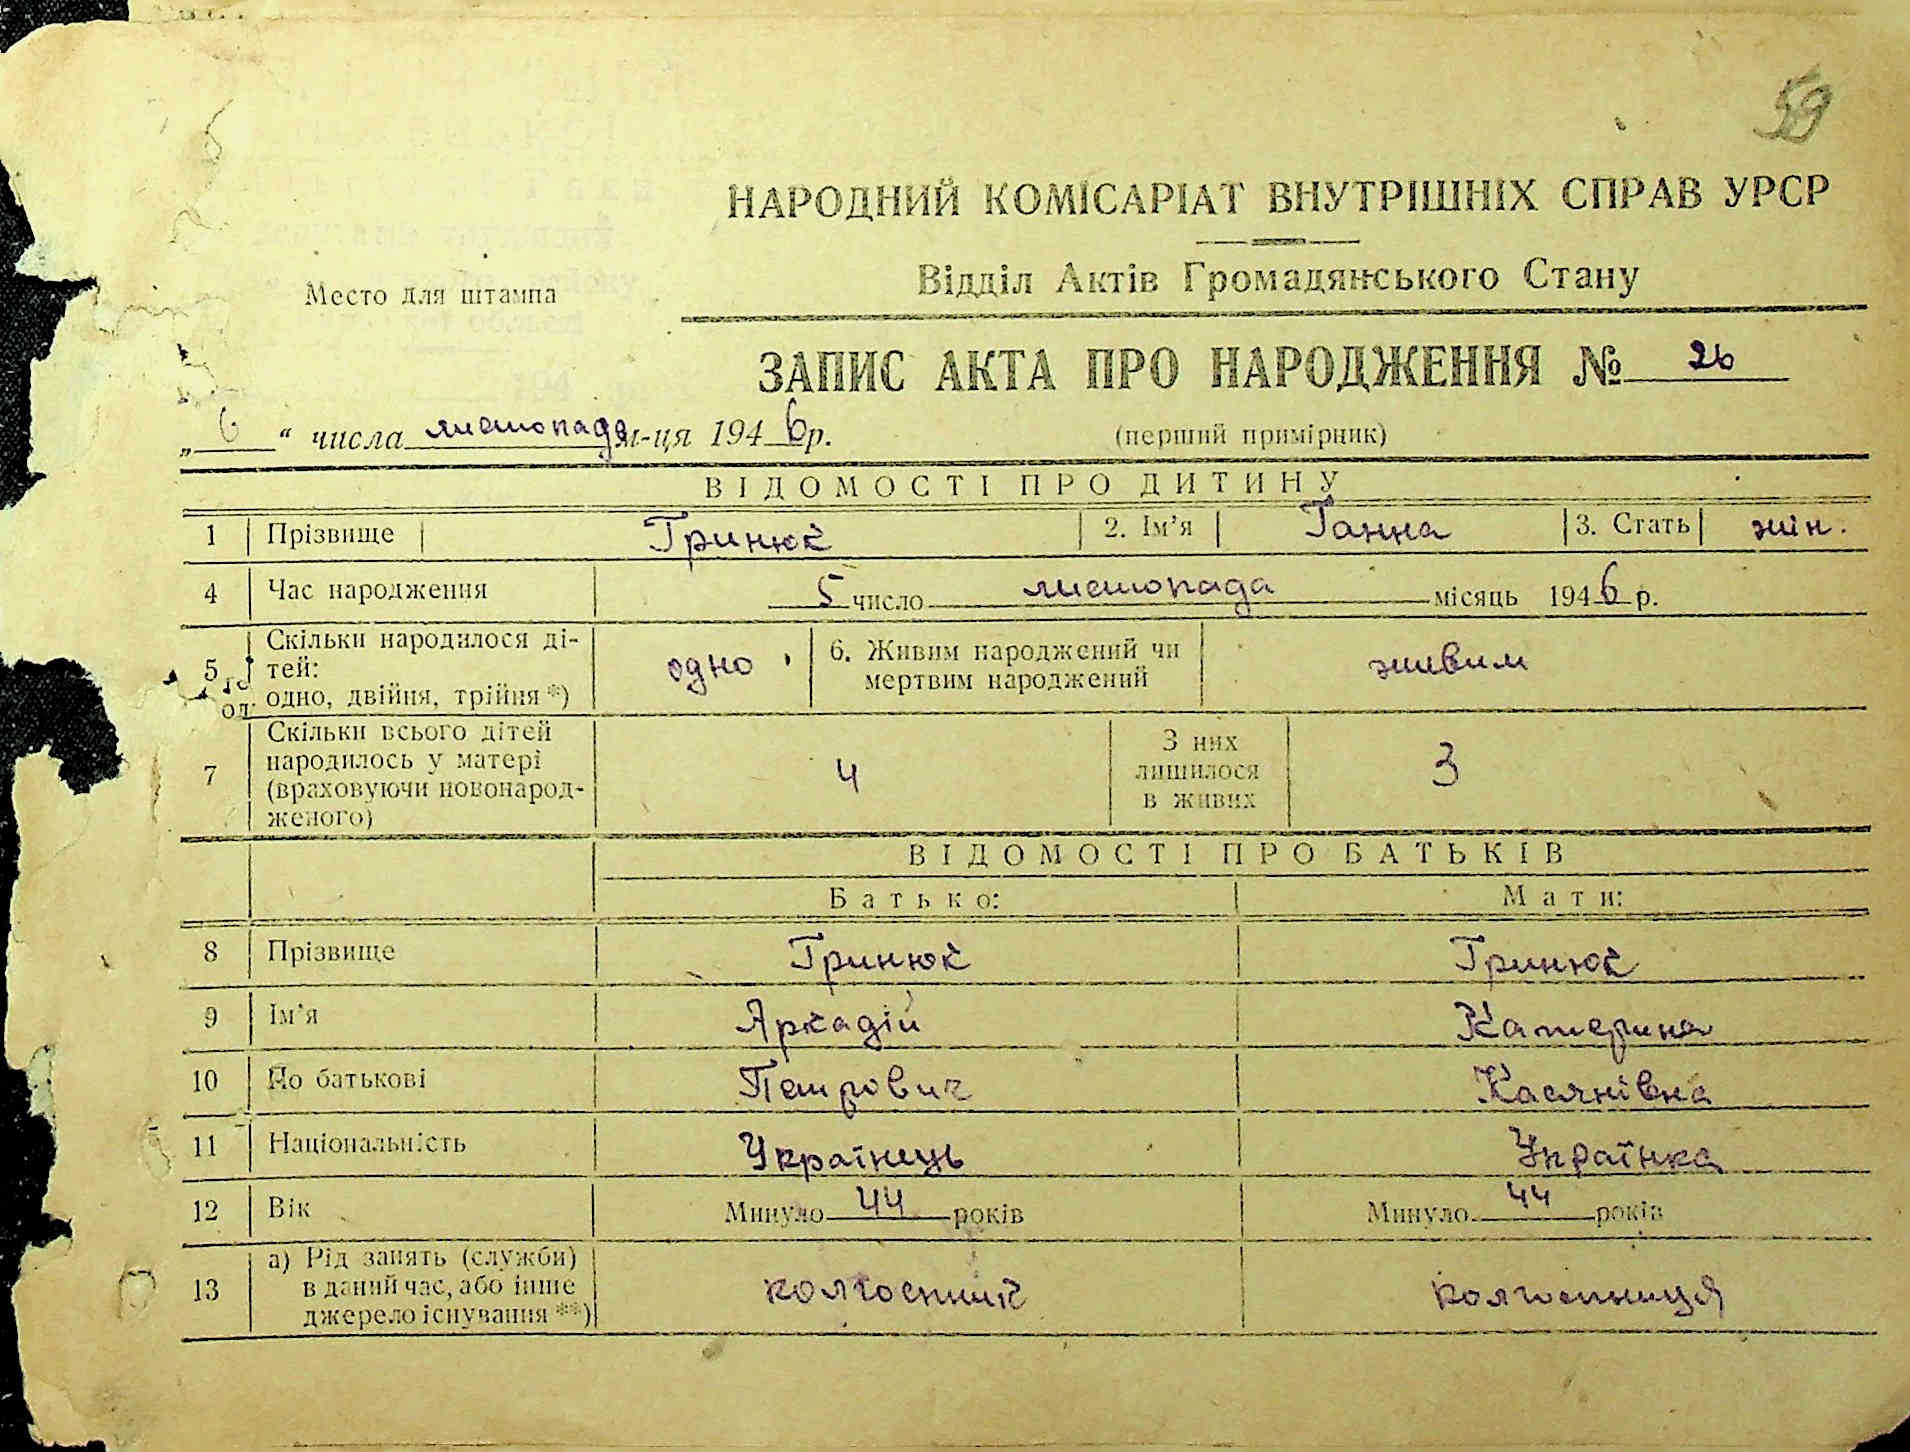 59
НАРОДНИЙ КОМІСАРІАТ ВНУТРІШНІХ СПРАВ УРСР
Место для штампа
Відділ Актів Громадянського Стану
ЗАПИС АКТА ПРО НАРОДЖЕННЯ № 26
„ 6 “ числа листопада м-ця 1946 р.
(перший примірник)
ВІДОМОСТІ ПРО ДИТИНУ
1 Прізвище Гринюк 2. Ім’я Ганна 3. Стать жін.
4 Час народження 5 число листопада місяць 1946 р.
5 Скільки народилося ді-
тей:
одно, двійня, трійня *)
одно
6. Живим народжений чи
мертвим народжений
живим
7 Скільки всього дітей
народилось у матері
(враховуючи новонарод-
женого)
4
З них
лишилося
в живих
3
ВІДОМОСТІ ПРО БАТЬКІВ
Батько: Мати:
8 Прізвище Гринюк Гринюк
9 Ім’я Аркадій Катерина
10 По батькові Петрович Касянівна
11 Національність Українець Українка
12 Вік Минуло 44 років Минуло 44 років
13 а) Рід занять (служби)
в даний час, або інше
джерело існування **)
колгоспник колгоспниця